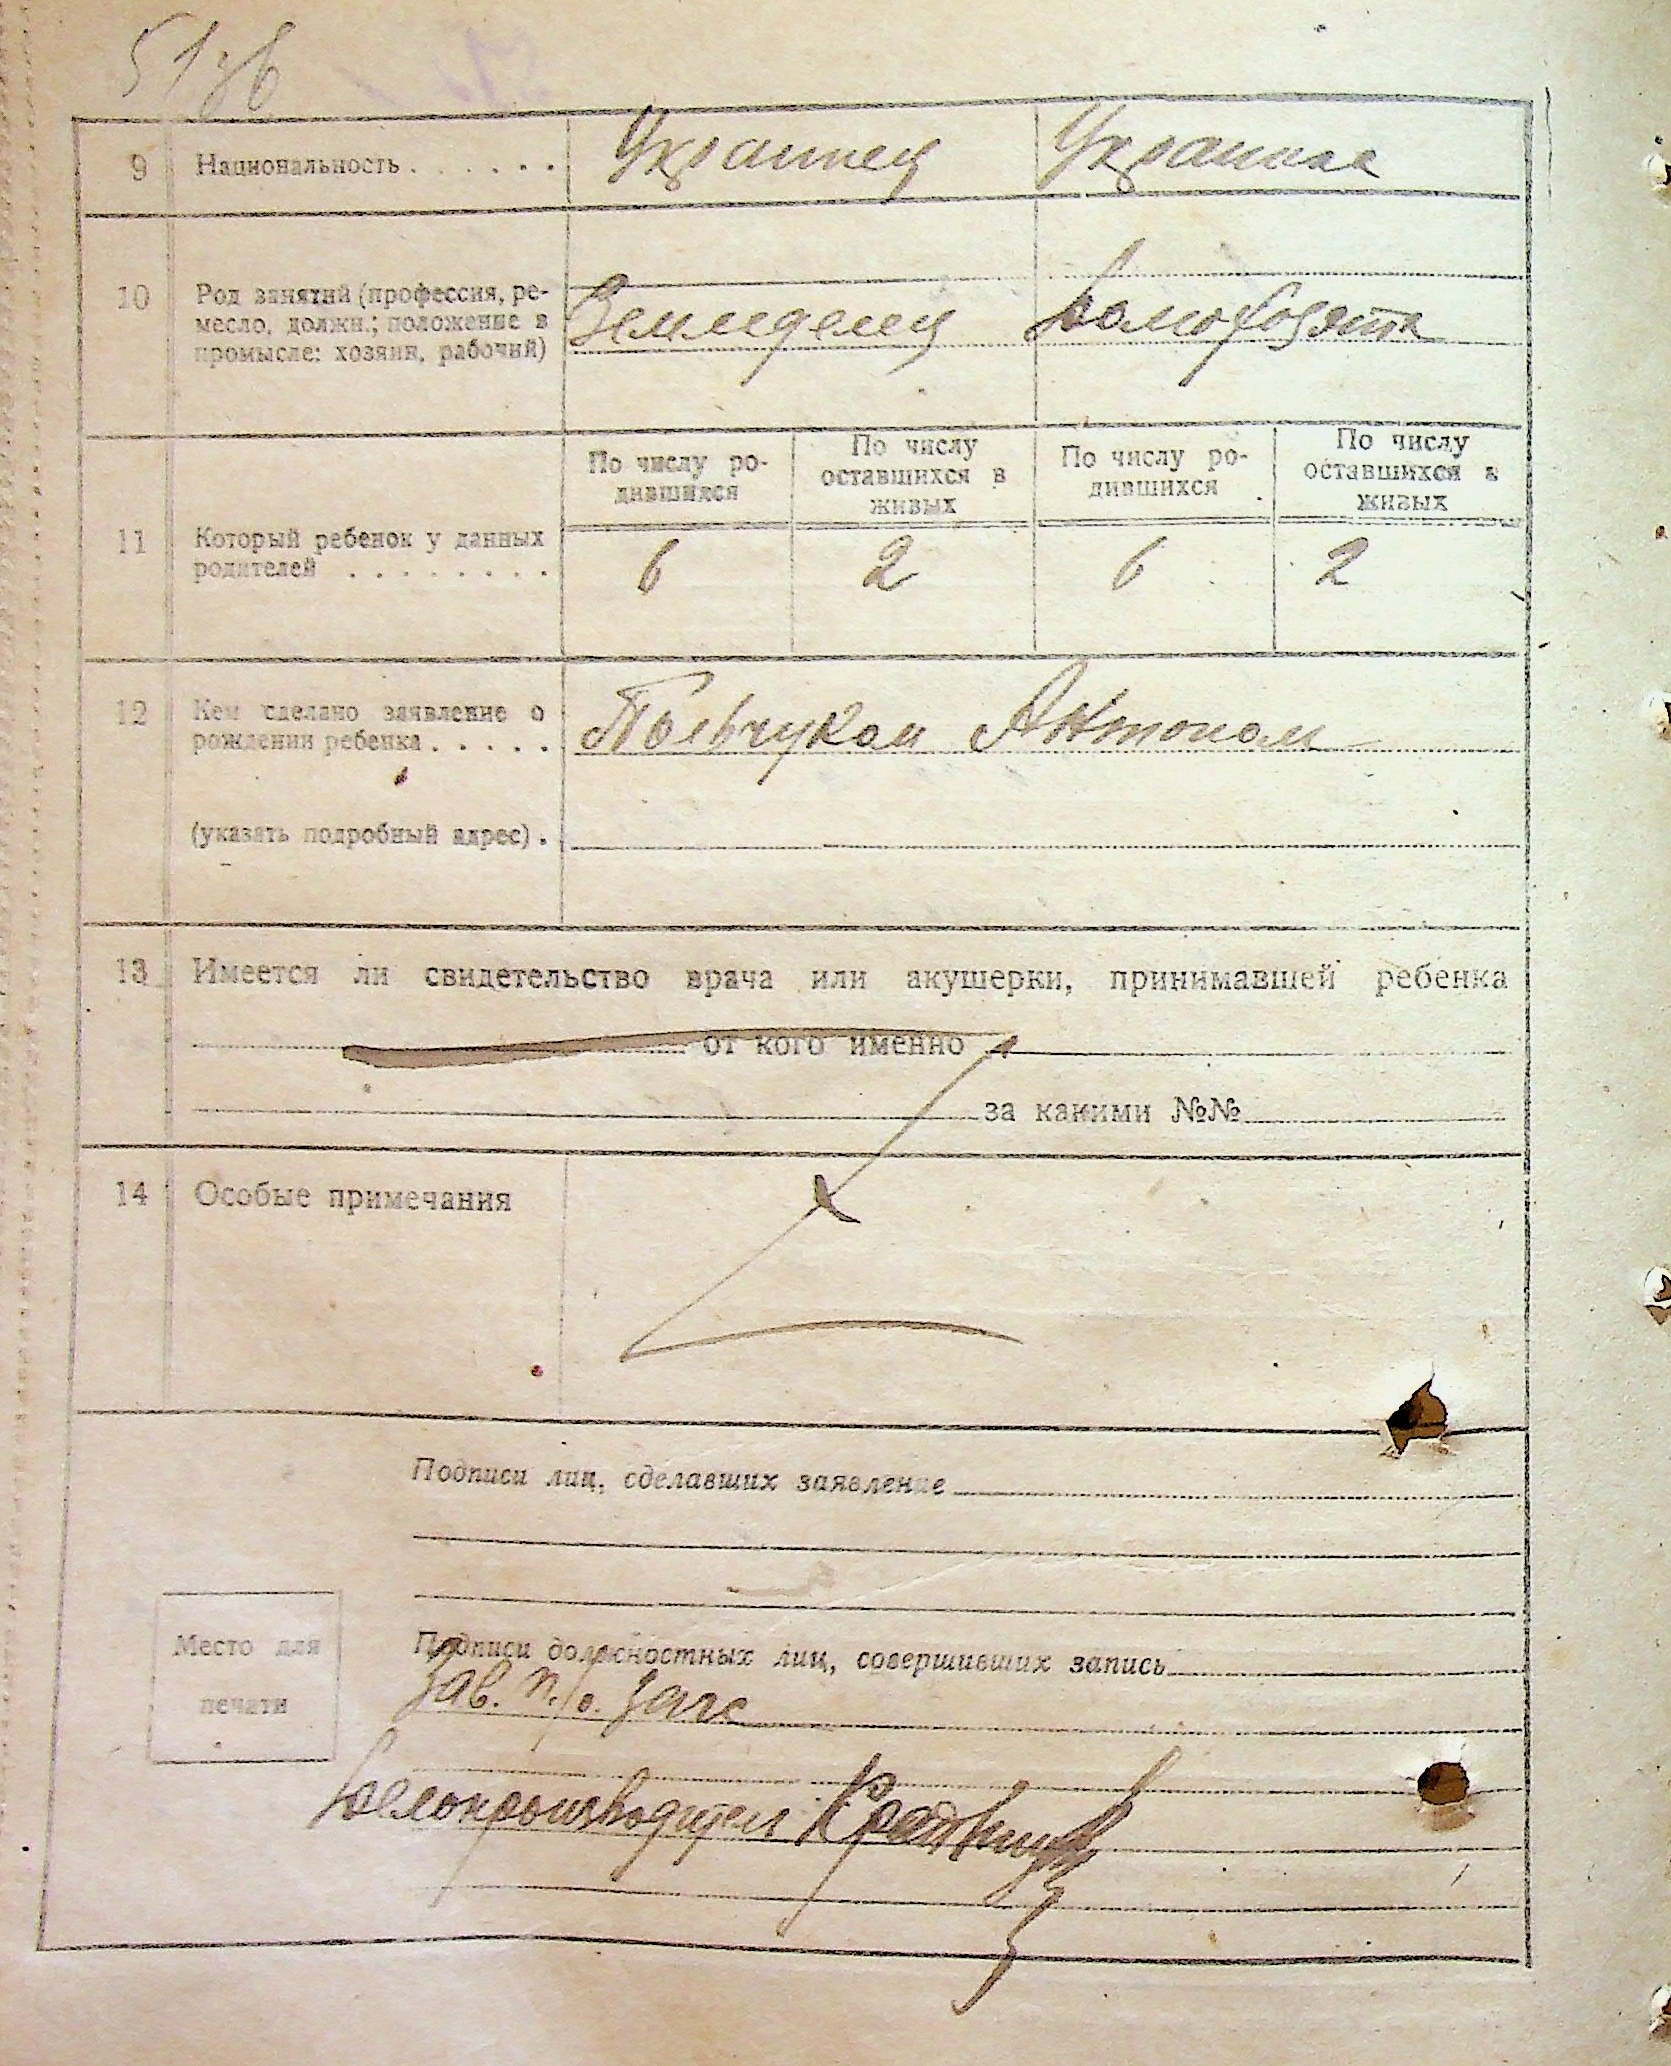 51 зв
9 Национальность . . . . . . Украинец Украинка
10 Род занятий (профессия, ре-
месло, должн.; положение в
промысле: хозяин, рабочий)
Земледелец Домохозяйка
По числу ро-
дившихся
По числу
оставшихся в
живых
По числу ро-
дившихся
По числу
оставшихся в
живых
11 Который ребенок у данных
родителей . . . . . . . .
6 2 6 2
12 Кем сделано заявление о
рождении ребенка . . . . .
Польчуком Антоном
(указать подробный адрес) .
13 Имеется ли свидетельство врача или акушерки, принимавшей ребенка
от кого именно
за какими №№
14 Особые примечания
Подписи лиц, сделавших заявление
Место для
печати
Подписи должностных лиц, совершивших запись
Зав. п/о. Загс
Делопроизводител